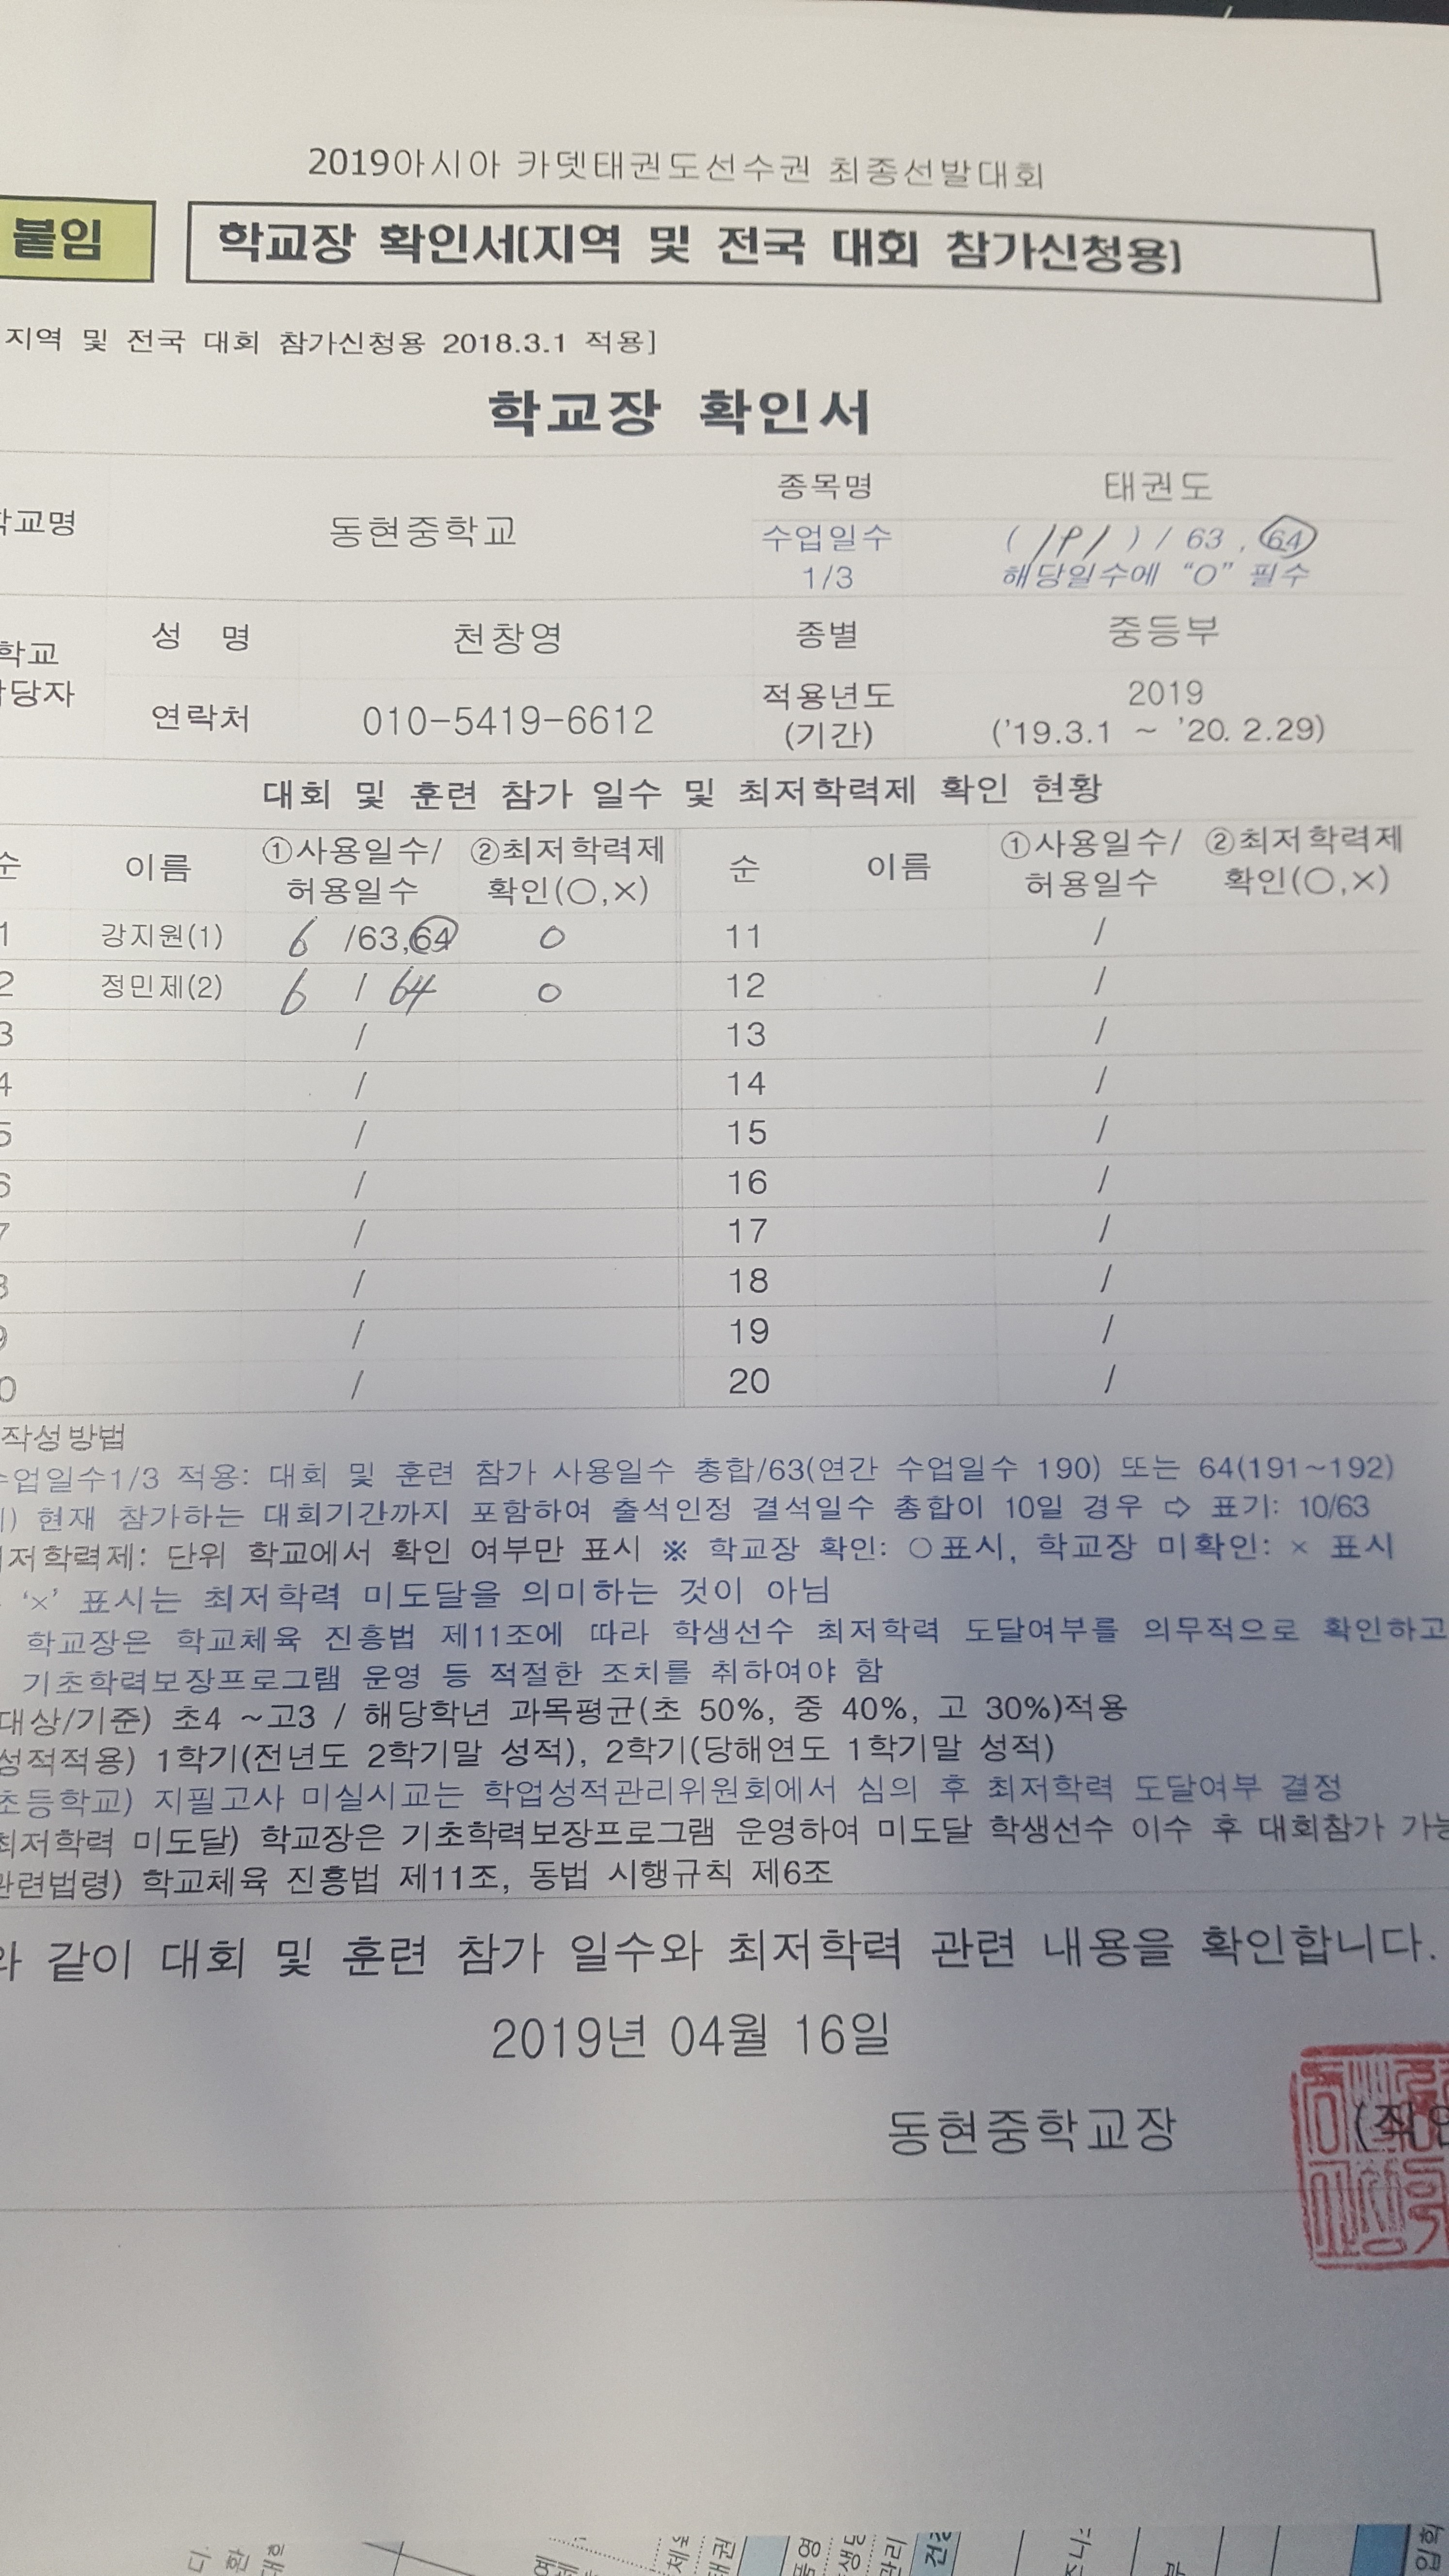 2019아시아 카뎃태권도선수권 최종선발대회
붙임
학교장 확인서[지역 및 전국 대회 참가신청용]
지역 및 전국 대회 참가신청용 2018.3.1 적용]
학교장 확인서
학교명 동현중학교 종목명 태권도
수업일수 1/3 ( 191 ) / 63 , 64
해당일수에 “O” 필수
학교
담당자
성 명 천창영 종별 중등부
연락처 010-5419-6612 적용년도 (기간) 2019
('19.3.1 ~ '20. 2.29)
대회 및 훈련 참가 일수 및 최저학력제 확인 현황
순 이름 ①사용일수/허용일수 ②최저학력제 확인(○,×) 순 이름 ①사용일수/허용일수 ②최저학력제 확인(○,×)
1 강지원(1) 6 /63,64 O 11 /
2 정민제(2) 6 / 64 O 12 /
3 / 13 /
4 / 14 /
5 / 15 /
6 / 16 /
7 / 17 /
8 / 18 /
9 / 19 /
0 / 20 /
작성방법
수업일수1/3 적용: 대회 및 훈련 참가 사용일수 총합/63(연간 수업일수 190) 또는 64(191~192)
) 현재 참가하는 대회기간까지 포함하여 출석인정 결석일수 총합이 10일 경우 ⇨ 표기: 10/63
저학력제: 단위 학교에서 확인 여부만 표시 ※ 학교장 확인: ○표시, 학교장 미확인: × 표시
‘×’ 표시는 최저학력 미도달을 의미하는 것이 아님
학교장은 학교체육 진흥법 제11조에 따라 학생선수 최저학력 도달여부를 의무적으로 확인하고
기초학력보장프로그램 운영 등 적절한 조치를 취하여야 함
대상/기준) 초4 ~고3 / 해당학년 과목평균(초 50%, 중 40%, 고 30%)적용
성적적용) 1학기(전년도 2학기말 성적), 2학기(당해연도 1학기말 성적)
초등학교) 지필고사 미실시교는 학업성적관리위원회에서 심의 후 최저학력 도달여부 결정
최저학력 미도달) 학교장은 기초학력보장프로그램 운영하여 미도달 학생선수 이수 후 대회참가 가능
관련법령) 학교체육 진흥법 제11조, 동법 시행규칙 제6조
와 같이 대회 및 훈련 참가 일수와 최저학력 관련 내용을 확인합니다.
2019년 04월 16일
동현중학교장 (직인